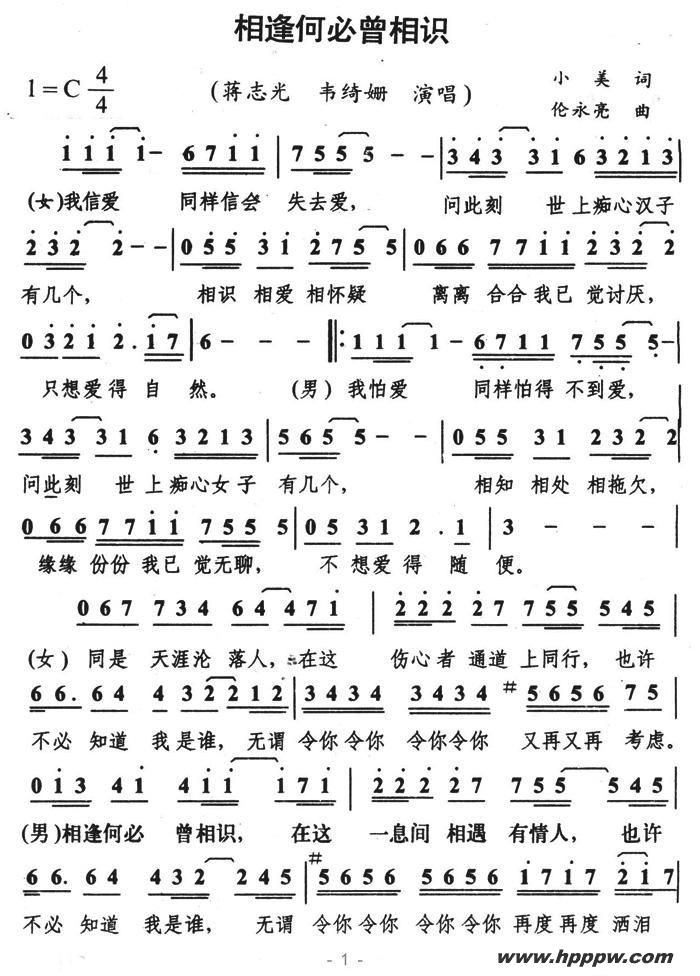 相逢何必曾相识
1=C 4/4
(蒋志光 韦绮姗 演唱)
小美 词
伦永亮 曲
1 1 1 1 1 - 6 7 1 1 | 7 5 5 5 5 - - | 3 4 3 3 1 6 3 2 1 3
(女)我信爱 同样信会 失去爱, 问此刻 世上痴心汉子
2 3 2 2 2 - - | 0 5 5 3 1 2 7 5 5 | 0 6 6 7 7 1 1 2 3 2 2
有几个, 相识 相爱 相怀疑 离离 合合我已 觉讨厌,
0 3 2 1 2. 1 7 | 6 - - - ‖: 1 1 1 1 1 - 6 7 1 1 7 5 5 5 - |
只想爱得 自 然。 (男)我怕爱 同样怕得 不到爱,
3 4 3 3 1 6 3 2 1 3 | 5 6 5 5 - - | 0 5 5 3 1 2 3 2 2
问此刻 世上痴心女子 有几个, 相知 相处 相拖欠,
0 6 6 7 7 1 1 7 5 5 5 | 0 5 3 1 2. 1 | 3 - - -
缘缘 份份 我已 觉无聊, 不 想爱得 随 便。
0 6 7 7 3 4 6 4 4 7 1 | 2 2 2 2 7 7 5 5 5 4 5
(女) 同是 天涯沦 落人, 在这 伤心者 通道 上同行, 也许
6 6. 6 4 4 3 2 2 2 1 2 | 3 4 3 4 3 4 3 4 #5 6 5 6 7 5 |
不必 知道 我是谁, 无谓 令你令你 令你令你 又再又再 考虑。
0 1 3 4 1 4 1 1 1 7 1 | 2 2 2 2 7 7 5 5 5 4 5
(男)相逢何必 曾相识, 在这 一息间 相遇 有情人, 也许
6 6. 6 4 4 3 2 2 4 5 | #5 6 5 6 5 6 5 6 1 7 1 7 2 1 7
不必 知道 我是谁, 无谓 令你令你 令你令你 再度再度 洒泪
- 1 -
www.hpppw.com